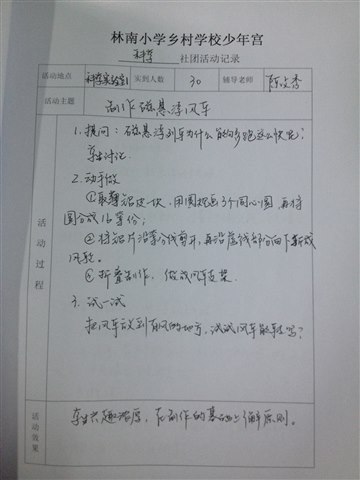 林南小学乡村学校少年宫
科学 社团活动记录
活动地点 科学实验室1 实到人数 30 辅导老师 陈
活动主题 制作磁悬浮风车
活动过程
1. 提问：磁悬浮列车为什么能够跑这么快呢？
学生讨论.
2. 动手做
①取铝皮一块，用圆规画3个同心圆，再将
圆分成16等份；
②将铝片沿等分线剪开，再沿虚线部分向下折成
风
③折叠制作，做成风车支架.
3. 试一试
把风车放到有风的地方，试试风车能转写？
活动效果
学生兴趣浓厚，在制作的基础上了解原则。